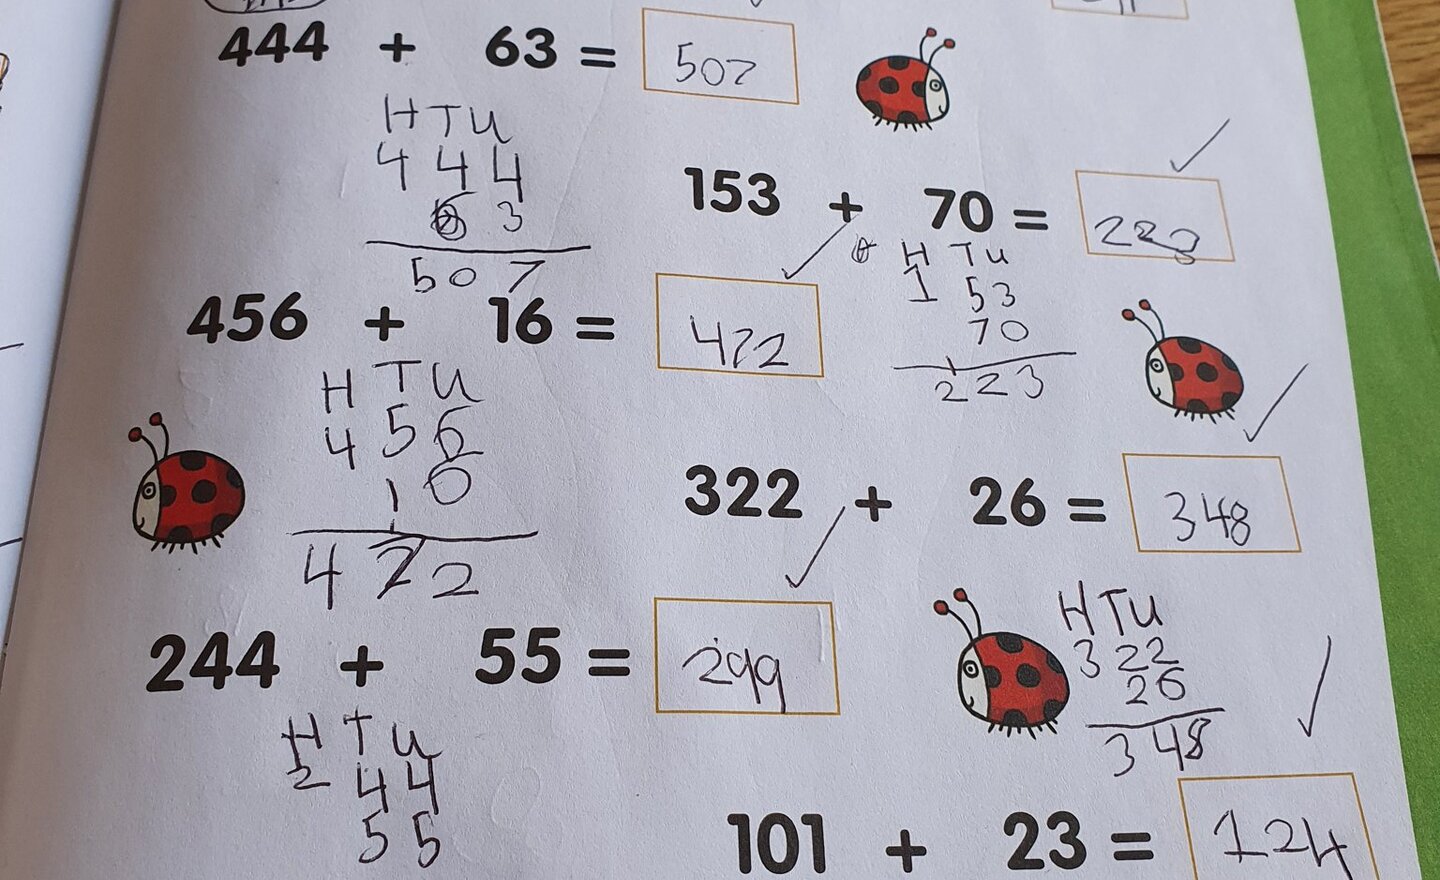 444 + 63 = 507
H T U
4 4 4
6 3
5 0 7
153 + 70 = 223
H T U
1 5 3
7 0
1
2 2 3
456 + 16 = 472
H T U
4 5 6
1 6
1
4 7 2
322 + 26 = 348
H T U
3 2 2
2 6
3 4 8
244 + 55 = 299
H T U
2 4 4
5 5
101 + 23 = 124